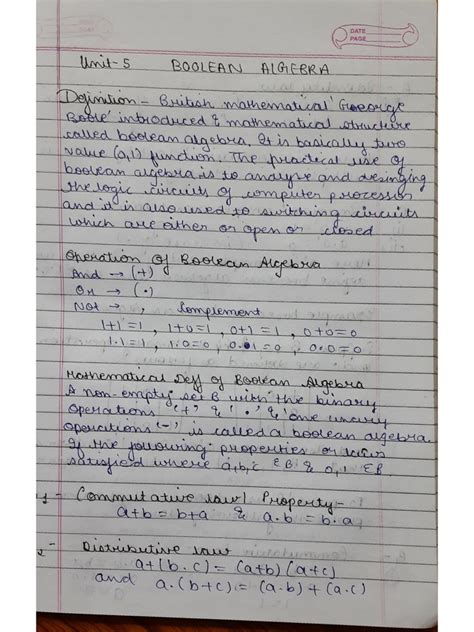 DATE
PAGE
Unit-5 BOOLEAN ALGEBRA
Definition - British mathematical 'George
Boole' introduced & mathematical structure
called boolean algebra. It is basically two
value (0,1) function. The practical use of
boolean algebra is to analyze and desinging
the logic circuits of computer processor
and it is also used to switching circuits
which are either or open or closed
Operation of Boolean Algebra
And → (+)
Or → (•)
Not → , Somplement
1+1=1, 1+0=1, 0+1=1, 0+0=0
1.1=1, 1.0=0, 0.1=0, 0.0=0
Mathematical Deff of Boolean Algebra
A non-empty set B with the binary
operations '+' & '•' & 'one unary
operations '-' is called a boolean algebra
if the following properties or laws
satisfied where a,b,c ∈B & 0,1 ∈B.
1- Commutative law/Property-
a+b = b+a & a.b = b.a
2- Distributive law
a+(b.c) = (a+b)(a+c)
and a.(b+c) = (a.b)+(a.c)